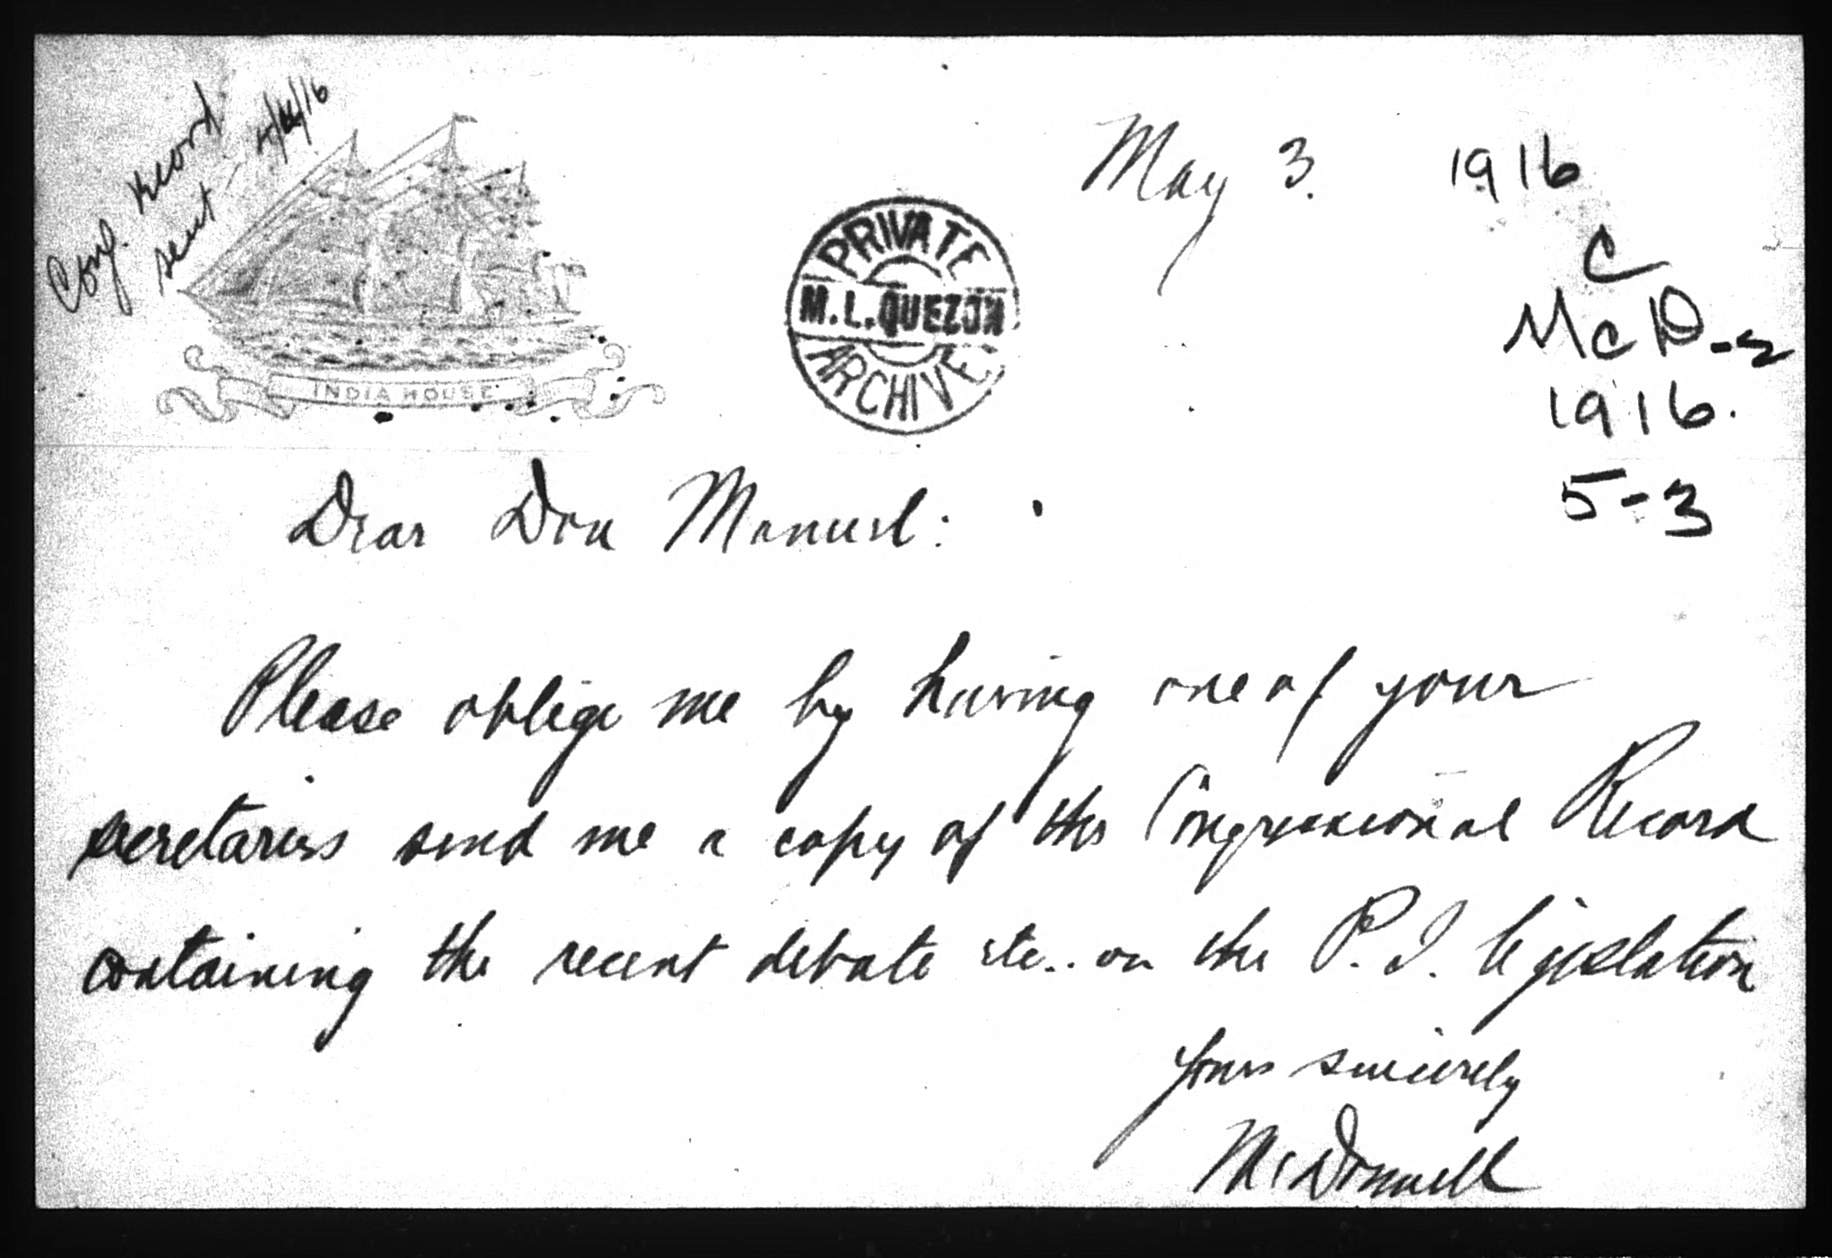 Cong. Record
sent
INDIA HOUSE
PRIVATE
M. L. QUEZON
ARCHIVE
May 3. 1916
C
McD-z
1916.
5-3
Dear Don Manuel:
Please oblige me by having one of your
secretaries send me a copy of the Congressional Record
containing the recent debate etc.. on the P. I. legislation
Yours sincerely
McDonnell